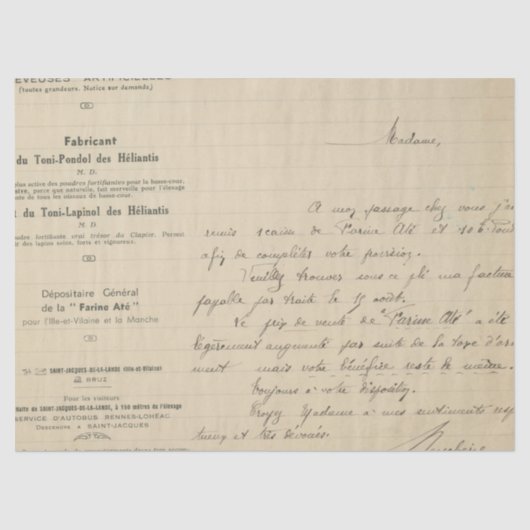 (toutes grandeurs. Notice sur demande.)
Fabricant
du Toni-Pondol des Héliantis
M. D.
plus active des poudres fortifiantes pour la basse-cour,
parce que naturelle, fait merveille pour l'élevage
de tous les oiseaux de basse-cour.
t du Toni-Lapinol des Héliantis
M. D.
oudre fortifiante vrai trésor du Clapier. Permet
des lapins sains, forts et vigoureux.
Dépositaire Général
de la "Farine Até"
pour l'Ille-et-Vilaine et la Manche
SAINT-JACQUES-DE-LA-LANDE (Ille-et-Vilaine)
BRUZ
Pour les visiteurs
Halte de SAINT-JACQUES-DE-LA-LANDE, à 150 mètres de l'élevage
SERVICE D'AUTOBUS RENNES-LOHÉAC
DESCENDRE A SAINT-JACQUES
Madame,
A mon passage chez vous j'ai
remis 1 caisse de Farine Até et
afin de compléter votre provision.
Veuillez trouver sous ce pli ma facture
payable par traite le 15 août.
Le prix de vente de "Farine Até" a été
légèrement augmenté par suite de la taxe d'ar
ment mais votre bénéfice reste le même.
Toujours à votre disposition.
Croyez Madame à mes sentiments res
tueux et très dévoués.